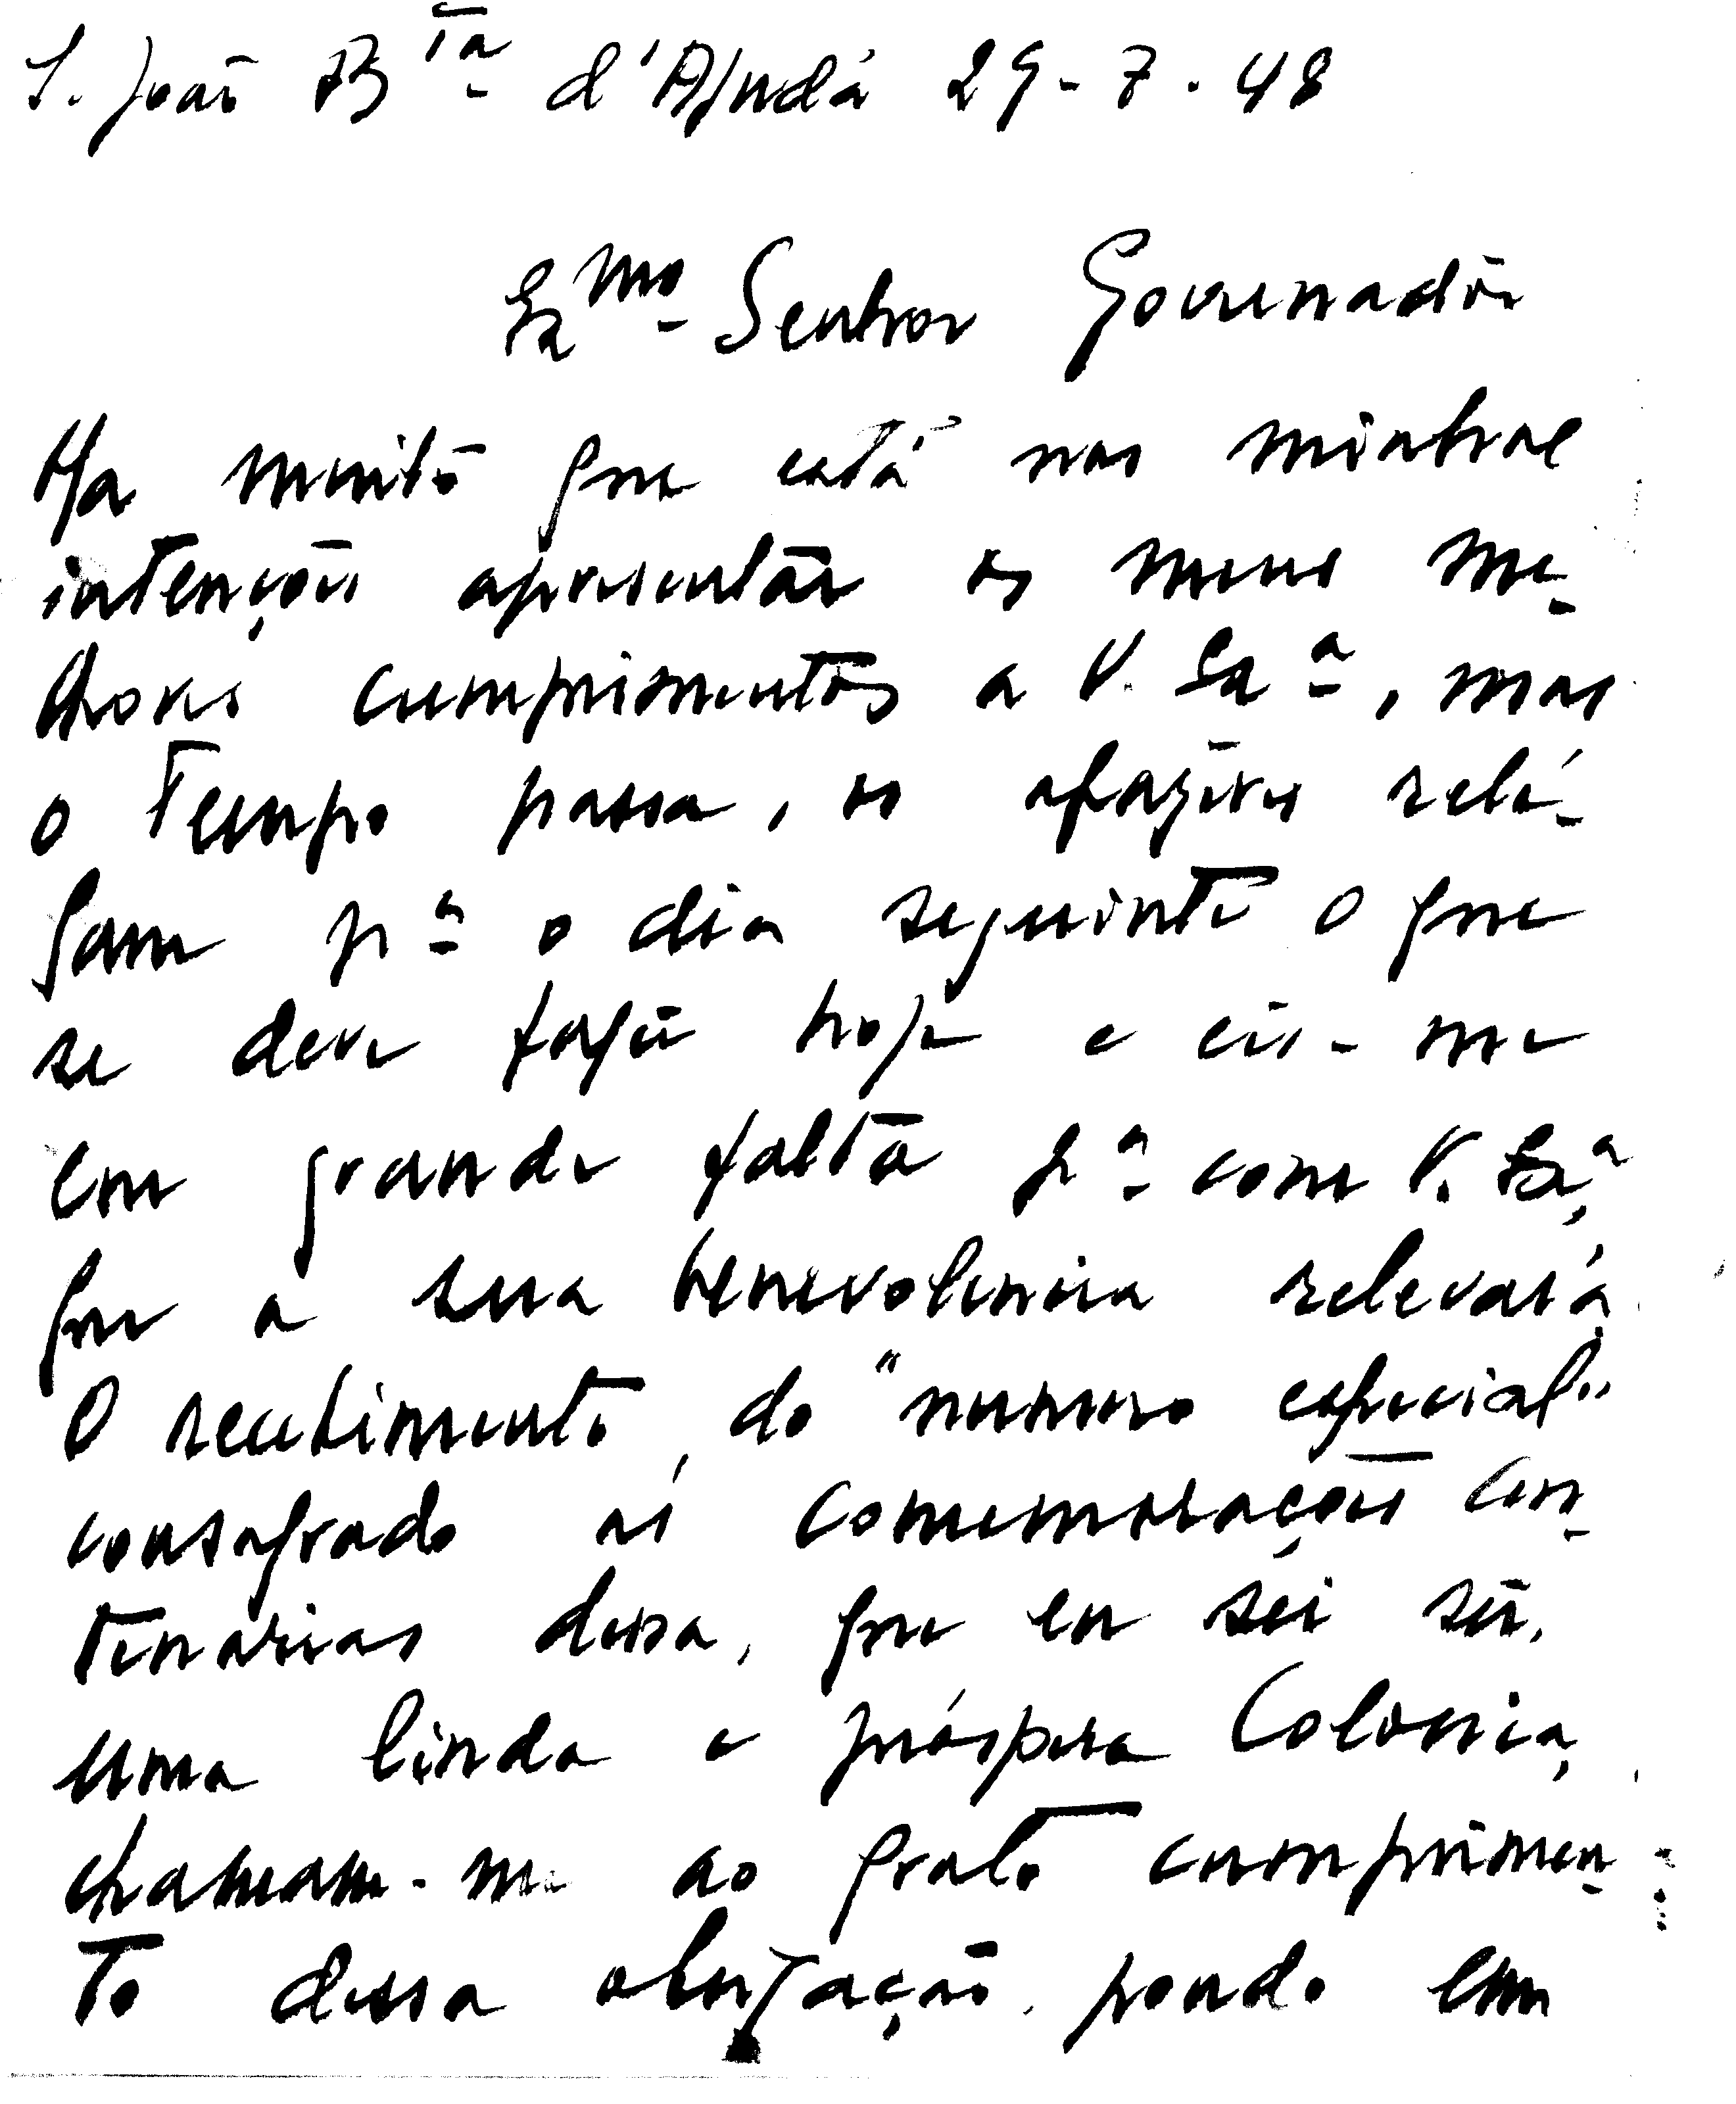 S. João Bᵗᵃ d'Ajudá 29-7-48
Exᵐᵒ Senhor Governadôr
Ha muito que está nas minhas
intenções apresentar os meus me-
lhores cumprimentos a V. Exª, mas
o tempo passa, os afazêres relé-
gam pª o dia seguinte o que
se deve fazêr hoje e eis-me
em grande falta pª com V. Exª,
que a sua benevolencia relevará.
O recebimento, do "numero especial"
consagrado ás comemorações cen-
tenarias dessa, que eu sei sêr,
uma linda e próspera Colonia,
chamam-me ao grato cumprimen-
to dessa obrigação, pondo em